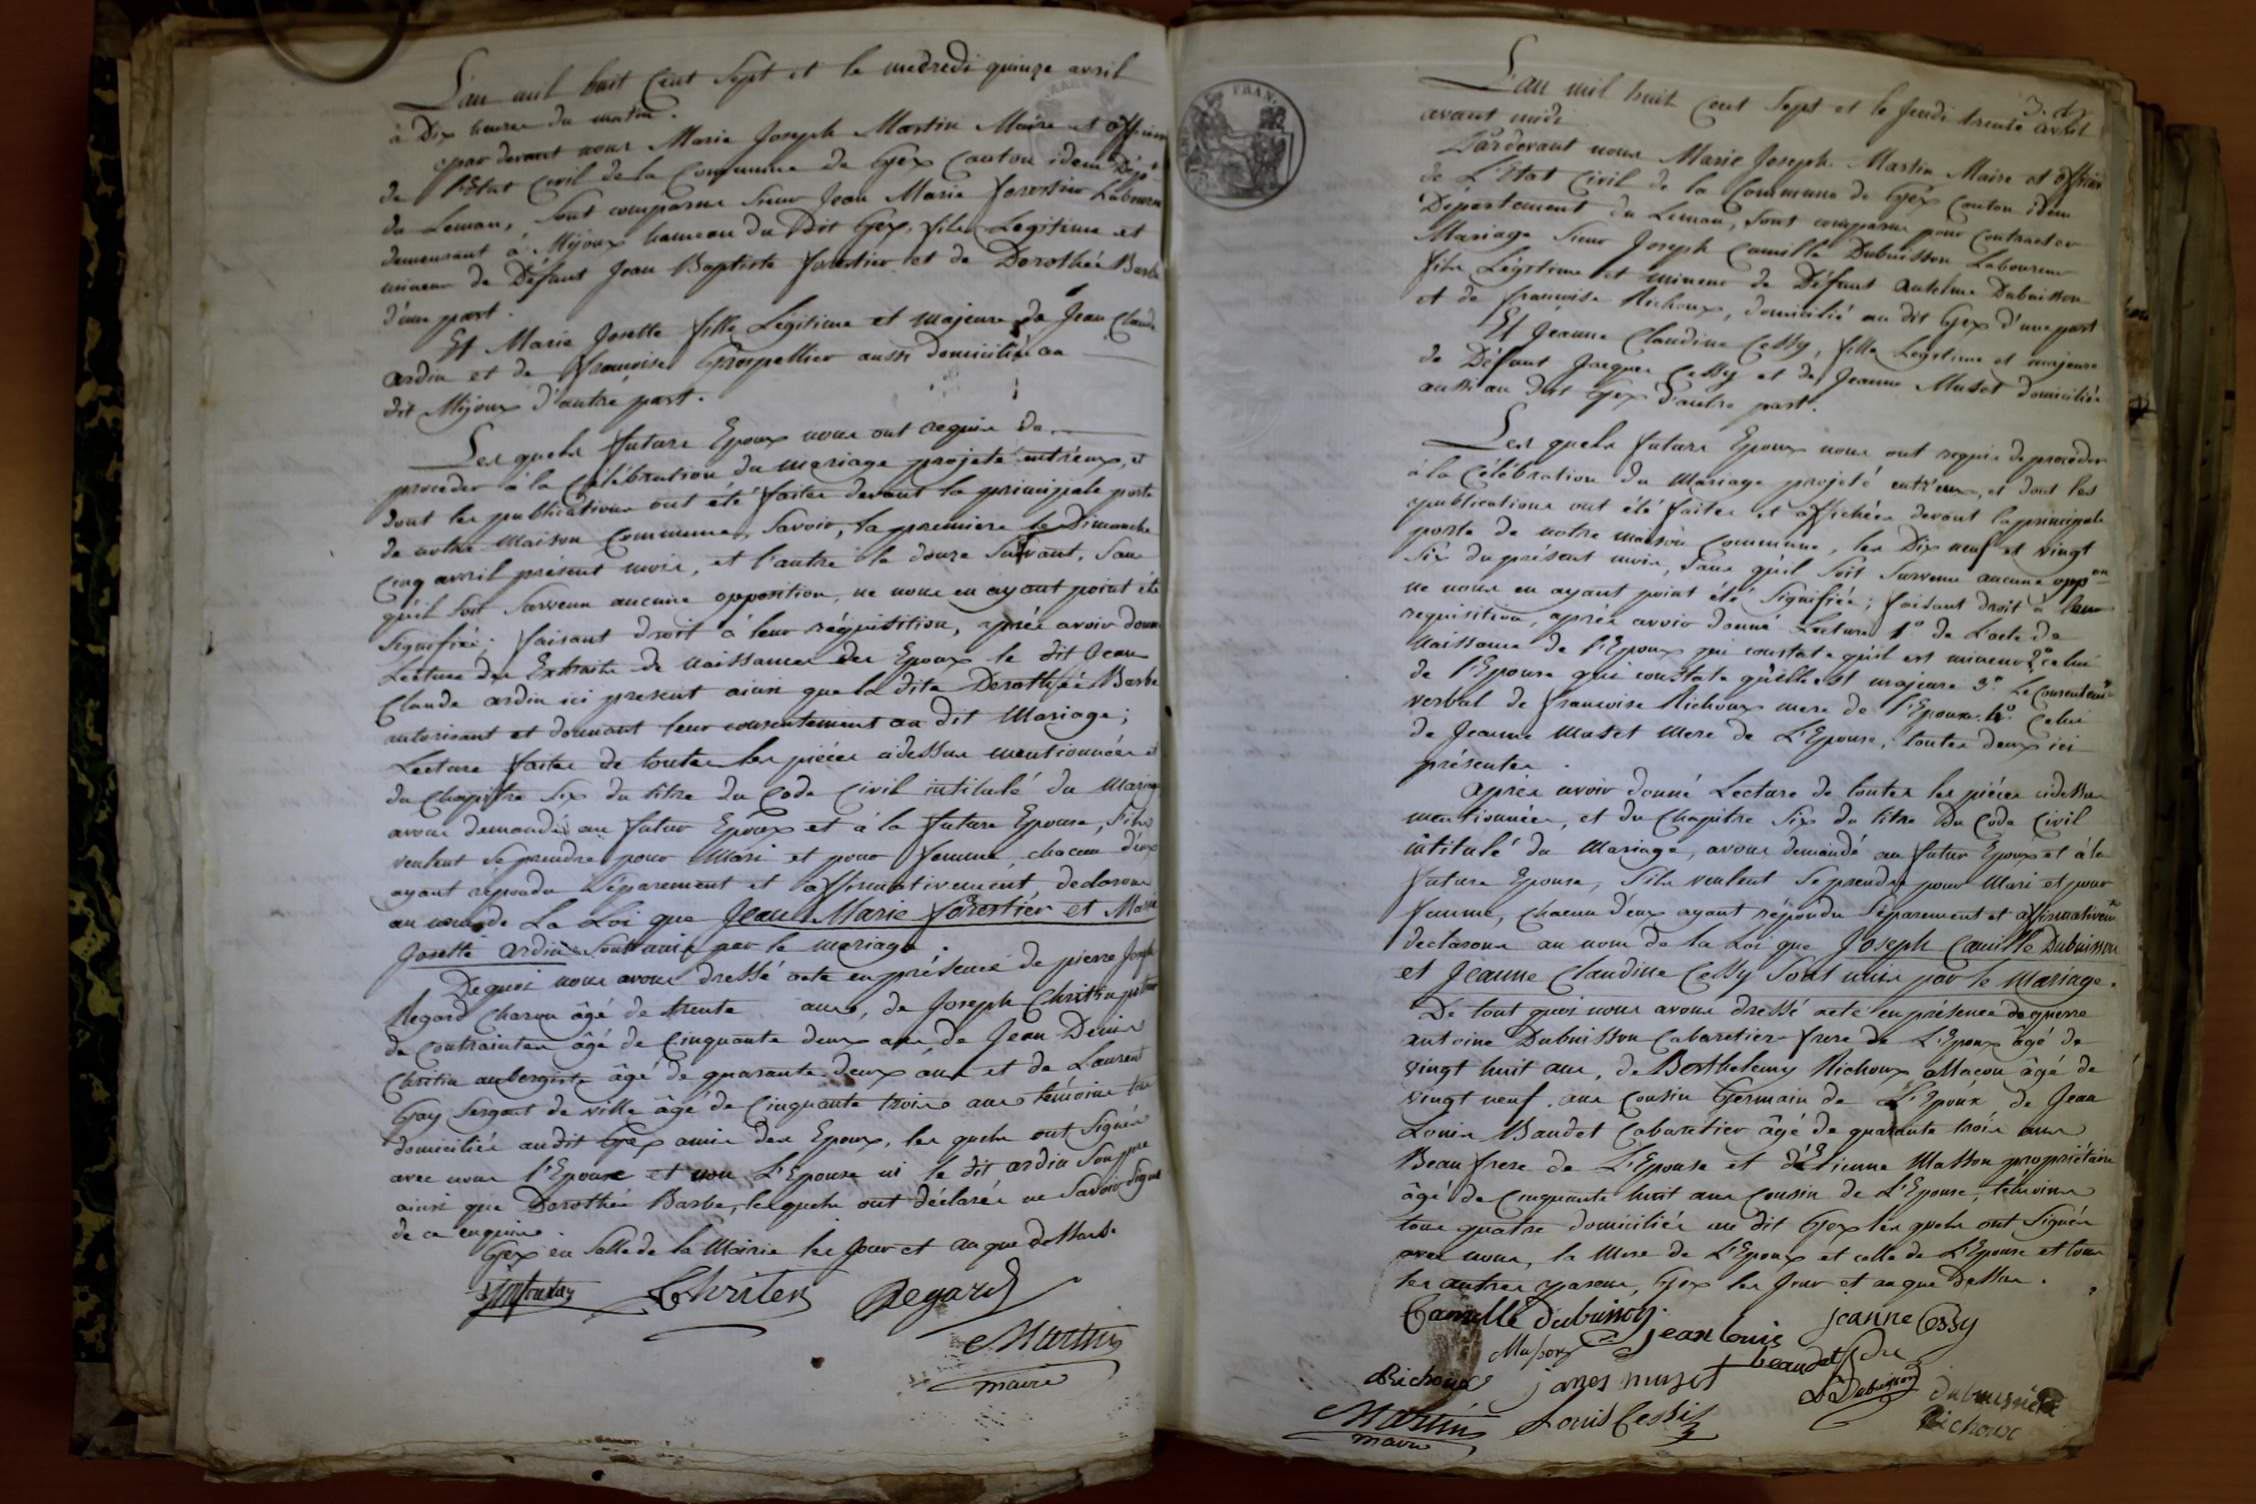 L'an mil huit Cent Sept et le mecredi quinze avril
à Dix heures du matin.
par devant nous Marie Joseph Martin Maire et officier
de l'Etat Civil de la Commune de Gex Canton idem Dép.t
du Leman, Sont comparus Sieur Jean Marie forestier Laboureur
demeurant à Mijoux hameau du Dit Gex, fils Legitime et
mineur de Défunt Jean Baptiste forestier et de Dorothée Barbe
d'une part.
Et Marie Josette fille Légitime et majeure de Jean Claude
ardin et de françoise Grospellier aussi domiciliée au
dit Mijoux d'autre part.
Les quels futurs Epoux nous ont requis de
proceder à la Célébration du mariage projeté entr'eux, et
dont les publications ont été faites devant la principale porte
de notre Maison Commune, Savoir, la premiere le Dimanche
Cinq avril présent mois, et l'autre le douze Suivant, Sans
qu'il soit Survenu aucune opposition, ne nous en ayant point été
Signifiée; faisant droit à leur réquisition, après avoir donné
Lecture des Extraits de naissances des Epoux le dit Jean
Claude ardin ici present ainsi que la dite Dorothée Barbe
autorisant et donnant leur consentement au dit Mariage;
Lecture faite de toutes les pièces cidessus mentionnées et
du Chapitre Six du titre du Code Civil intitulé du Mariage
avons demandé au futur Epoux et à la future Epouse, S'ils
veulent Se prendre pour Mari et pour femme, chacun d'eux
ayant répondu Séparement et affirmativement, declarons
au nom de La Loi que Jean Marie forestier et Marie
Josette ardin Sont unis par le mariage.
De quoi nous avons dressé acte en présence de pierre Joseph
Regard Charon âgé de trente ans, de Joseph Christin porteur
de Contraintes âgé de Cinquante deux ans, de Jean Denis
Christin aubergiste âgé de quarante deux ans et de Laurent
Gay Sergent de ville âgé de Cinquante trois ans témoins tous
domiciliés au dit Gex amis des Epoux, les quels ont Signés
avec nous l'Epoux et non L'Epouse ni le dit ardin Son père
ainsi que Dorothée Barbe, lesquels ont déclarés ne Savoir Signer
de ce enquis.
Gex en Salle de la Mairie les Jour et an que dessus.
Christin Regard
Martin
maire
L'an mil huit Cent Sept et le Jeudi trente avril
avant midi
Pardevant nous Marie Joseph Martin Maire et officier
de L'Etat Civil de la Commune de Gex Canton idem
Département du Leman, Sont comparus pour Contracter
Mariage Sieur Joseph Camille Dubuisson Laboureur
fils Légitime et mineur de Défunt Antelme Dubuisson
et de françoise Richoux, domicilié au dit Gex d'une part
Et Jeanne Claudine Cessy, fille Legitime et majeure
de Défunt Jacques Cessy et de Jeanne Muset domiciliée
aussi au dit Gex d'autre part.
Les quels futurs Epoux nous ont requis de proceder
à la Célébration du Mariage projeté entr'eux, et dont les
publications ont été faites et affichées devant la principale
porte de notre maison Commune, les Dix neuf et vingt
Six du présent mois, Sans qu'il Soit Survenu aucune oppon
ne nous en ayant point été Signifiée; faisant droit à leur
requisition, après avoir donné Lecture 1º de L'acte de
Naissance de l'Epoux qui constate qu'il est mineur 2º celui
de l'Epouse qui constate qu'elle est majeure 3º Le Consentemt
verbal de françoise Richoux mere de l'Epoux 4º Celui
de Jeanne Muset Mere de L'Epouse, toutes deux ici
présentes.
après avoir donné Lecture de toutes les pièces cidessus
mentionnées, et du Chapitre Six du titre du Code Civil
intitulé du Mariage, avons demandé au futur Epoux et à la
future Epouse, S'ils veulent Se prendre pour Mari et pour
femme, Chacun d'eux ayant répondu Séparement et affirmativemt
declarons au nom de la Loi que Joseph Camille Dubuisson
et Jeanne Claudine Cessy Sont unis par le Mariage.
De tout quoi nous avons dressé acte en présence de pierre
antoine Dubuisson Cabaretier frere de L'Epoux âgé de
vingt huit ans, de Barthelemy Richoux Maçon âgé de
vingt neuf ans Cousin Germain de L'Epoux de Jean
Louis Baudet Cabaretier âgé de quarante trois ans
Beau frere de L'Epouse et d'Etienne Masson propriétaire
âgé de Cinquante huit ans Cousin de L'Epouse, témoins
tous quatre domiciliés au dit Gex les quels ont Signés
avec nous, la Mere de L'Epoux et celle de L'Epouse et tous
les autres parens, Gex les Jour et an que Dessus.
Camille dubuisson jeanne Cessy
Masson jean louis
beaudet
Richoux janes muset Dubuisson
Martin Louis Cessi Richoux
maire